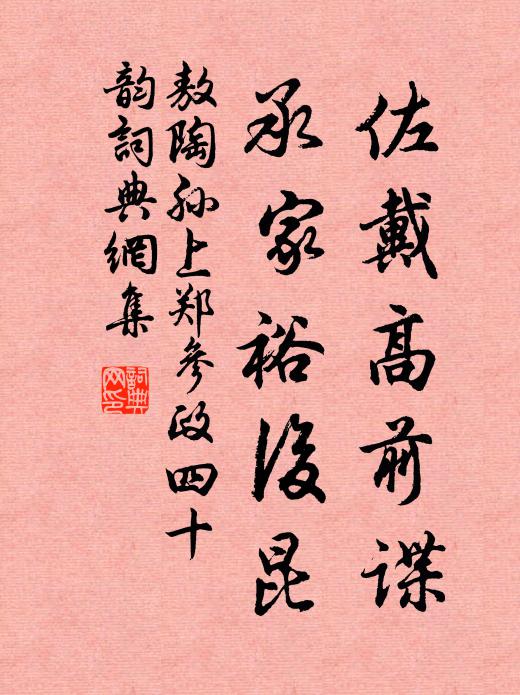 佐戴高前谍
承家裕後昆
敖陶孙上郑参政四十
韵詞典網集
詞典网印